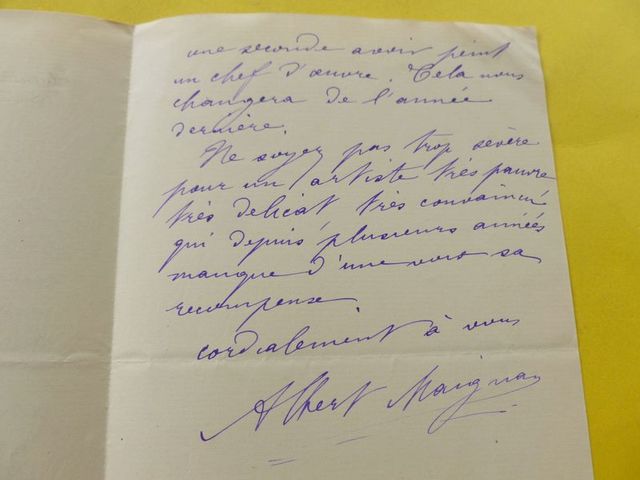 une seconde avoir peint
un chef d'œuvre. Cela nous
changera de l'année
dernière.
Ne soyez pas trop sévère
pour un artiste très pauvre
très délicat très convaincu
qui depuis plusieurs années
manque d'une voix sa
recompense.
cordialement à vous
Albert Maignan